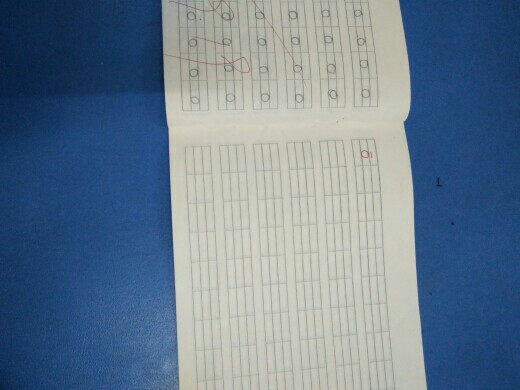 o o o o
o o o o
o o o o
o o o o
o o o o
o o o o
ō